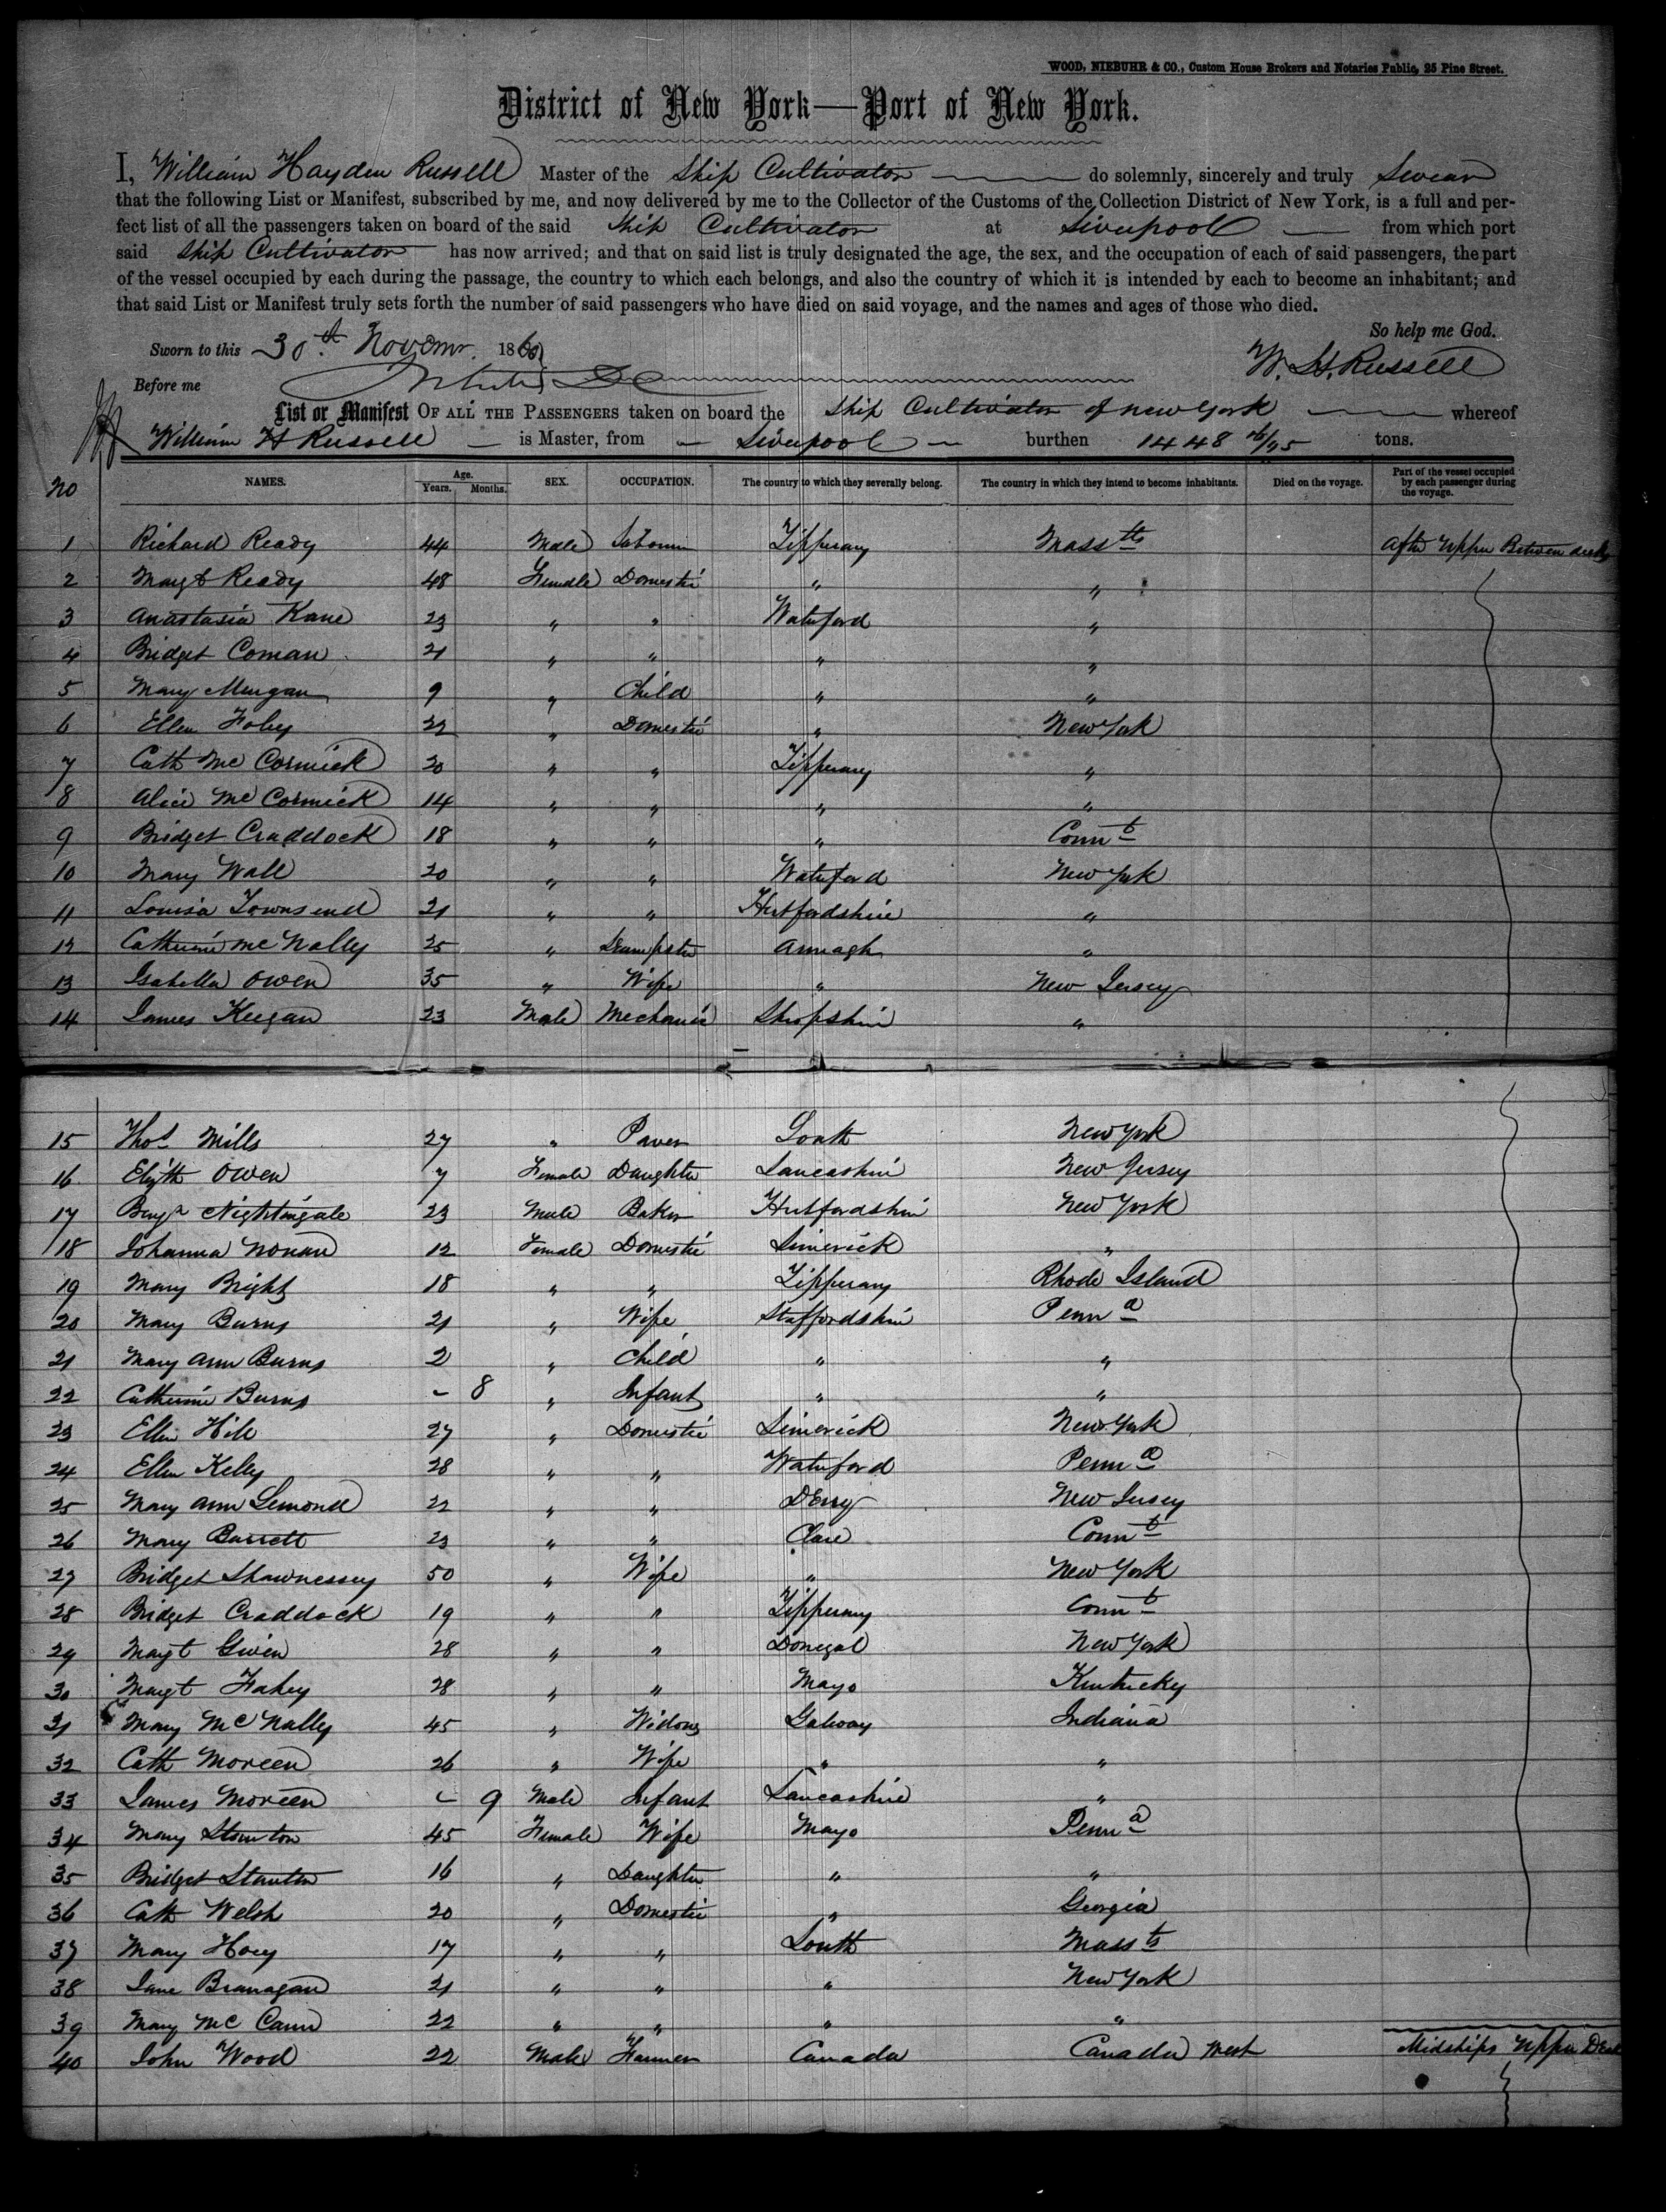 WOOD, NIEBUHR & CO., Custom House Brokers and Notaries Public, 25 Pine Street.
District of New York—Port of New York.
I, William Hayden Russell Master of the Ship Cultivator do solemnly, sincerely and truly Swear
that the following List or Manifest, subscribed by me, and now delivered by me to the Collector of the Customs of the Collection District of New York, is a full and per-
fect list of all the passengers taken on board of the said Ship Cultivator at Liverpool from which port
said Ship Cultivator has now arrived; and that on said list is truly designated the age, the sex, and the occupation of each of said passengers, the part
of the vessel occupied by each during the passage, the country to which each belongs, and also the country of which it is intended by each to become an inhabitant; and
that said List or Manifest truly sets forth the number of said passengers who have died on said voyage, and the names and ages of those who died.
So help me God.
Sworn to this 30th Novemr. 1860
W. H. Russell
Before me
List or Manifest OF ALL THE PASSENGERS taken on board the Ship Cultivator of New York whereof
William H Russell is Master, from Liverpool burthen 1448 tons.
No NAMES. Age. Years. Months. SEX. OCCUPATION. The country to which they severally belong. The country in which they intend to become inhabitants. Died on the voyage. Part of the vessel occupied by each passenger during the voyage.
1 Richard Ready 44 Male Labourer Tipperary Massts After Upper Between decks
2 Margt Ready 48 Female Domestic " "
3 Anastasia Kane 23 " " Waterford "
4 Bridget Coman 21 " " " "
5 Mary Mungan 9 " Child " "
6 Ellen Foley 22 " Domestic " New York
7 Cath McCormick 20 " " Tipperary "
8 Alice McCormick 14 " " " "
9 Bridget Craddock 18 " " " Connt
10 Mary Wall 20 " " Waterford New York
11 Louisa Townsend 21 " " Hertfordshire "
12 Catherine McNally 25 " Armagh "
13 Isabella Owen 35 " Wife " New Jersey
14 James Keegan 23 Male Mechanic Shropshire "
15 Thos Mills 27 " Paver Louth New York
16 Elizth Owen 7 Female Daughter Lancashire New Jersey
17 Benjn Nightingale 23 Male Baker Hertfordshire New York
18 Johanna Nonan 12 Female Domestic Limerick "
19 Mary Bright 18 " " Tipperary Rhode Island
20 Mary Burns 21 " Wife Staffordshire Penna
21 Mary Ann Burns 2 " Child " "
22 Catherine Burns - 8 " Infant " "
23 Ellen Hile 27 " Domestic Limerick New York
24 Ellen Kelly 28 " " Waterford Penna
25 Mary Ann Lemond 22 " " Derry New Jersey
26 Mary Barrett 23 " " Clare Connt
27 Bridget Shawnessey 50 " Wife " New York
28 Bridget Craddock 19 " " Tipperary Connt
29 Margt Given 28 " " Donegal New York
30 Margt Fahey 28 " " Mayo Kentucky
31 Mary McNally 45 " Widow Galway Indiana
32 Cath Moreen 26 " Wife " "
33 James Moreen - 9 Male Infant Lancashire "
34 Mary Staunton 45 Female Wife Mayo Penna
35 Bridget Staunton 16 " Daughter " "
36 Cath Welsh 20 " Domestic " Georgia
37 Mary Hoey 17 " " Louth Massts
38 Jane Branagan 21 " " " New York
39 Mary McCann 22 " " " "
40 John Wood 22 Male Farmer Canada Canada West Midships Upper Deck